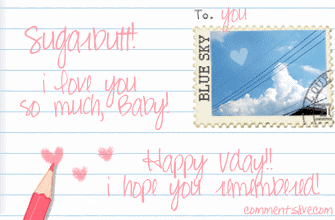 To. you
Sugarbutt!
i love you
so much, Baby!
BLUE SKY
Happy Vday!!
i hope you remembered!
commentslive.com